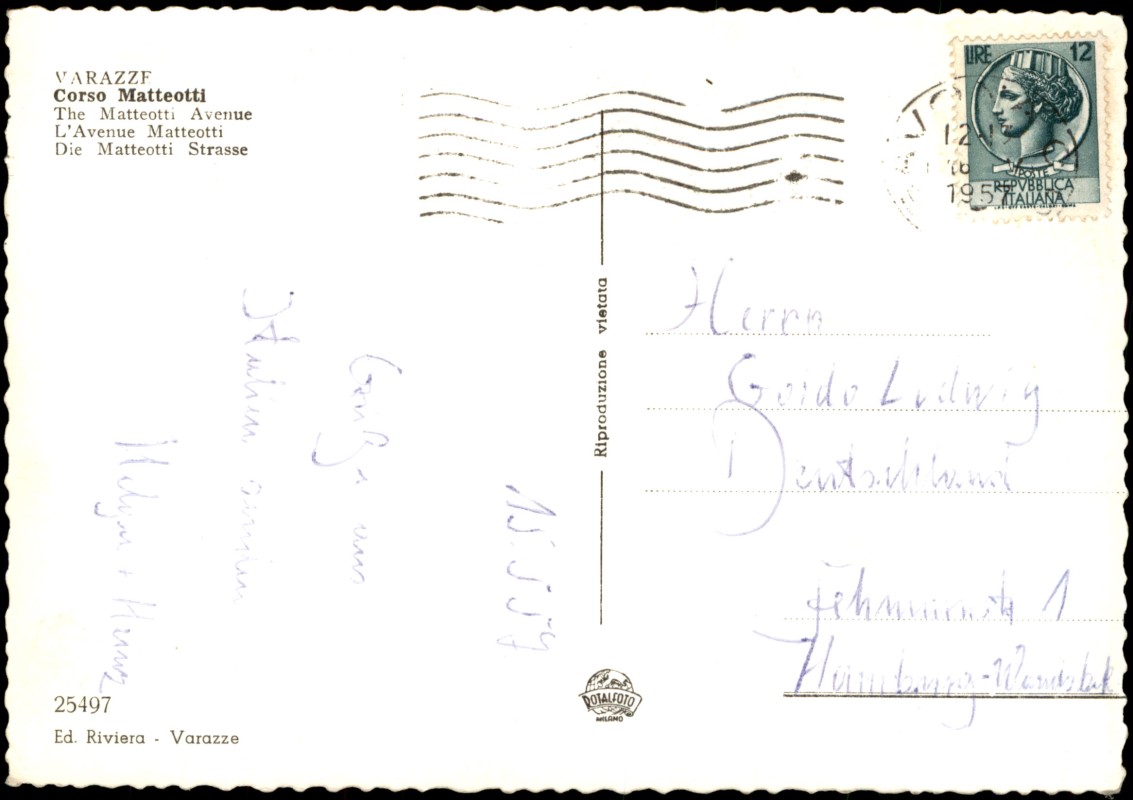 VARAZZE
Corso Matteotti
The Matteotti Avenue
L'Avenue Matteotti
Die Matteotti Strasse
LIRE 12
POSTE
REPVBBLICA
ITALIANA
1957
15.5.59
Grüße aus
Helga + Heinz
Riproduzione vietata
Herrn
Guido Ludwig
Deutschland
1
Hamburg-Wandsbek
25497
Ed. Riviera - Varazze
ROTALFOTO
MILANO